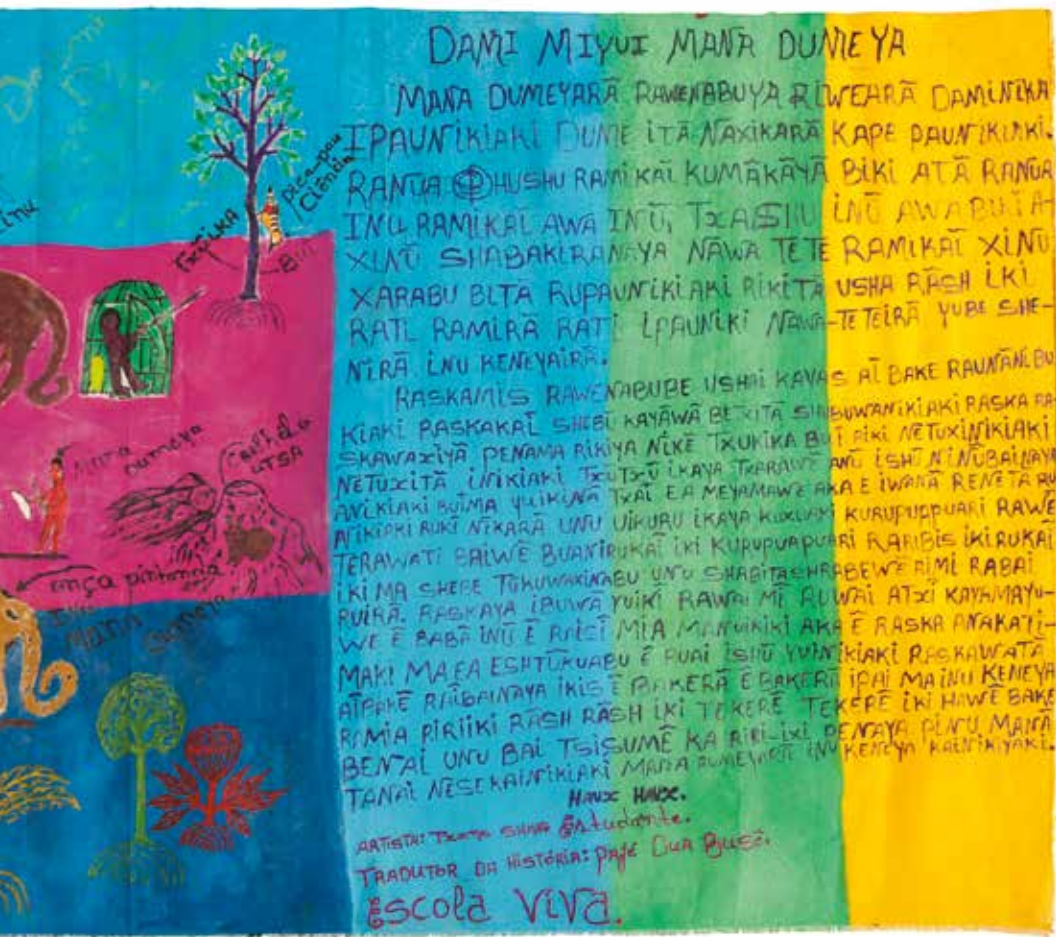 DAMI MIYUI MANA DUMEYA
MANA DUMEYARÃ RAWENABUYA RIWEARÃ DAMINIKA
IPAUNIKIAKI DUME ITÃ NAXIKARÃ KAPE PAUNIKIAKI.
RANUA HUSHU RAMIKAI KUMÃKAYÃ BIKI ATÃ RANUA
INU RAMIKAI AWA INŨ, TXASHU INŨ AWABUIA-
XINŨ SHABAKIRANAYA NAWA TETE RAMIKAĨ XINU
XARABU BITA RUPAUNIKIAKI RIKITÃ USHA RÃSH IKI
RATI RAMIRÃ RATI IPAUNIKI NAWA-TETEIRÃ YUBE SHE-
NIRÃ INU KENEYAIRÃ.
RASKAMIS RAWENABUBE USHAI KAYAS AĨ BAKE RAUNANIBU
KIAKI RASKAKAĨ SHEBI KAYÃWÃ BE XITÃ RASKA
SKAWAXIYÃ PENAMA RIKIYA NIKE TXUKIKA BUI PIKI NETUXINIKIAKI
NETUXITÃ INIKIAKI TXUTXŨ IKAYA TXARAWE ANŨ ISHŨ NINŨBAINAYA
ANIKIAKI BUIMA YUIKINÃ TXAI EA MEYAMAWE AKA E IWANÃ RENETÃ RU
NIKIAKI RUKI NIKARÃ UNU UIKURU IKAYA KURUPUAPUARI RAWẼ
TERAWATI BAIWẼ BUANIRUKAĨ IKI KURUPUAPUARI RARIBIS IKI RUKAI
IKI MA SHEBE TŨKUWAXINABU UNU RIMI RABAI
RUIRÃ. RASKAYA IBUWÃ YUIKI RAWAI MĨ RUWAI ATXI KAYAMAYU-
WE Ẽ BABÃ INŨ Ẽ RAISĨ MIA MANUIKIKI AKA Ẽ RASKA ANAKATI-
MAKI MAEA ESHTŨKUABU Ẽ RUAI ISHŨ YUINIKIAKI RASKAWATÃ
AĨBAKẼ RAĨBAINAYA IKIS Ẽ BAKERÃ Ẽ BAKERÃ IPAI MAINU KENEYA
RAMIA PIRIIKI RÃSH RÃSH IKI TEKERẼ TEKERẼ IKI HAWẼ BAKE
BENAI UNU BAI TSISUMẼ KA RIRI-IXI PENAYA PINU MANÃ
TANAI NESEKAINIKIAKI MANA DUMEYARÃ INU KENEYA KAINIKIYAKI.
HAUX HAUX.
ARTISTA: TXATA SHINÃ Estudante.
TRADUTOR DA HISTÓRIA: PAJÉ DUA BUSẼ.
Escola Viva.
Pica-pau
Ciência
TXÕIKA
BUI
Mana
Dumeya
UTSA
onça pintada
INU
MANA